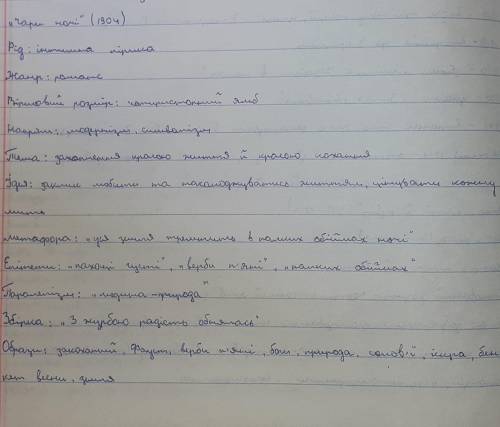 „Чари ночі" (1904)
Рід: інтимна лірика
Жанр: романс
Віршовий розмір: чотиристопний ямб
Напрям: модернізм, символізм
Тема: захоплення красою життя й красою кохання
Ідея: заклик любити та насолоджуватись життям, цінувати кожну
мить
метафора: „уся земля тремтить в палких обіймах ночі"
Епітети: „пахощі густі", „верби п'яні", „палких обіймах"
Паралелізм: „людина-природа"
Збірка: „З журбою радість обнялась"
Образи: закоханий, Фауст, верби п'яні, боги, природа, соловей, іскра, бен
кет весни, земля